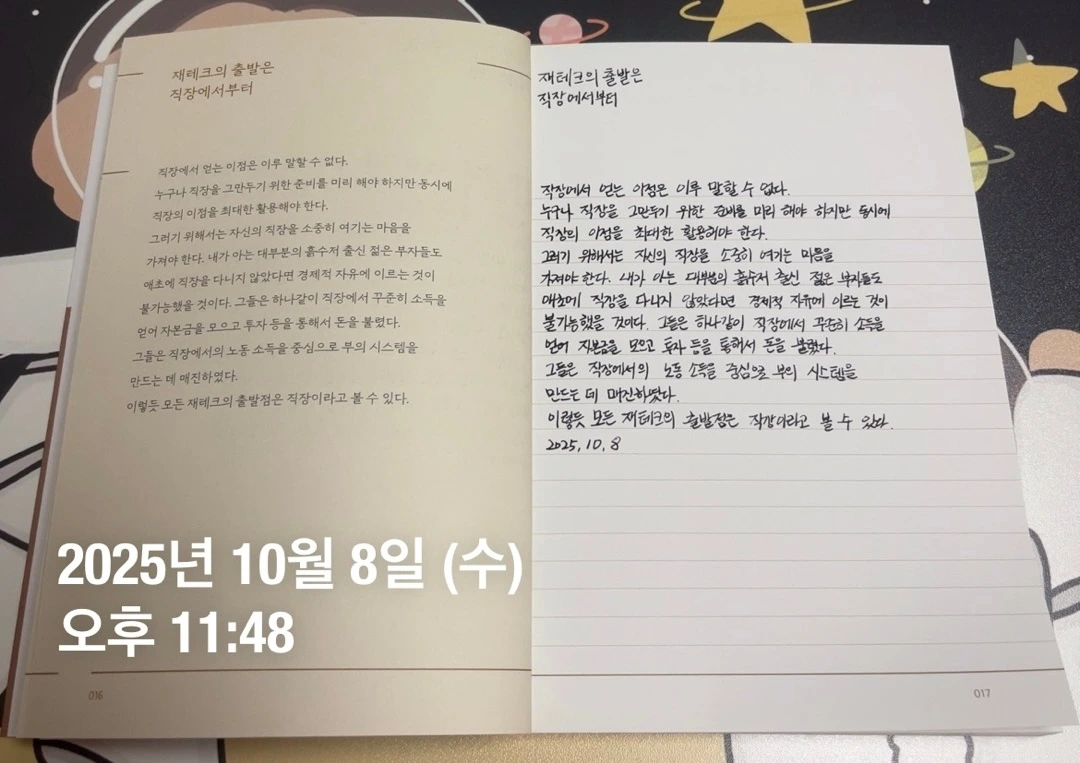 재테크의 출발은
직장에서부터
직장에서 얻는 이점은 이루 말할 수 없다.
누구나 직장을 그만두기 위한 준비를 미리 해야 하지만 동시에
직장의 이점을 최대한 활용해야 한다.
그러기 위해서는 자신의 직장을 소중히 여기는 마음을
가져야 한다. 내가 아는 대부분의 흙수저 출신 젊은 부자들도
애초에 직장을 다니지 않았다면 경제적 자유에 이르는 것이
불가능했을 것이다. 그들은 하나같이 직장에서 꾸준히 소득을
얻어 자본금을 모으고 투자 등을 통해서 돈을 불렸다.
그들은 직장에서의 노동 소득을 중심으로 부의 시스템을
만드는 데 매진하였다.
이렇듯 모든 재테크의 출발점은 직장이라고 볼 수 있다.
2025년 10월 8일 (수)
오후 11:48
016
재테크의 출발은
직장에서부터
직장에서 얻는 이점은 이루 말할 수 없다.
누구나 직장을 그만두기 위한 준비를 미리 해야 하지만 동시에
직장의 이점을 최대한 활용해야 한다.
그러기 위해서는 자신의 직장을 소중히 여기는 마음을
가져야 한다. 내가 아는 대부분의 흙수저 출신 젊은 부자들도
애초에 직장을 다니지 않았다면 경제적 자유에 이르는 것이
불가능했을 것이다. 그들은 하나같이 직장에서 꾸준히 소득을
얻어 자본금을 모으고 투자 등을 통해서 돈을 불렸다.
그들은 직장에서의 노동 소득을 중심으로 부의 시스템을
만드는 데 매진하였다.
이렇듯 모든 재테크의 출발점은 직장이라고 볼 수 있다.
2025, 10, 8
017